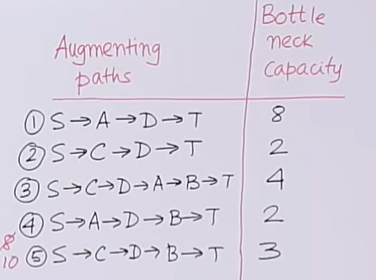 Augmenting paths
Bottle neck capacity
① S→A→D→T 8
② S→C→D→T 2
③ S→C→D→A→B→T 4
④ S→A→D→B→T 2
8
10 ⑤ S→C→D→B→T 3